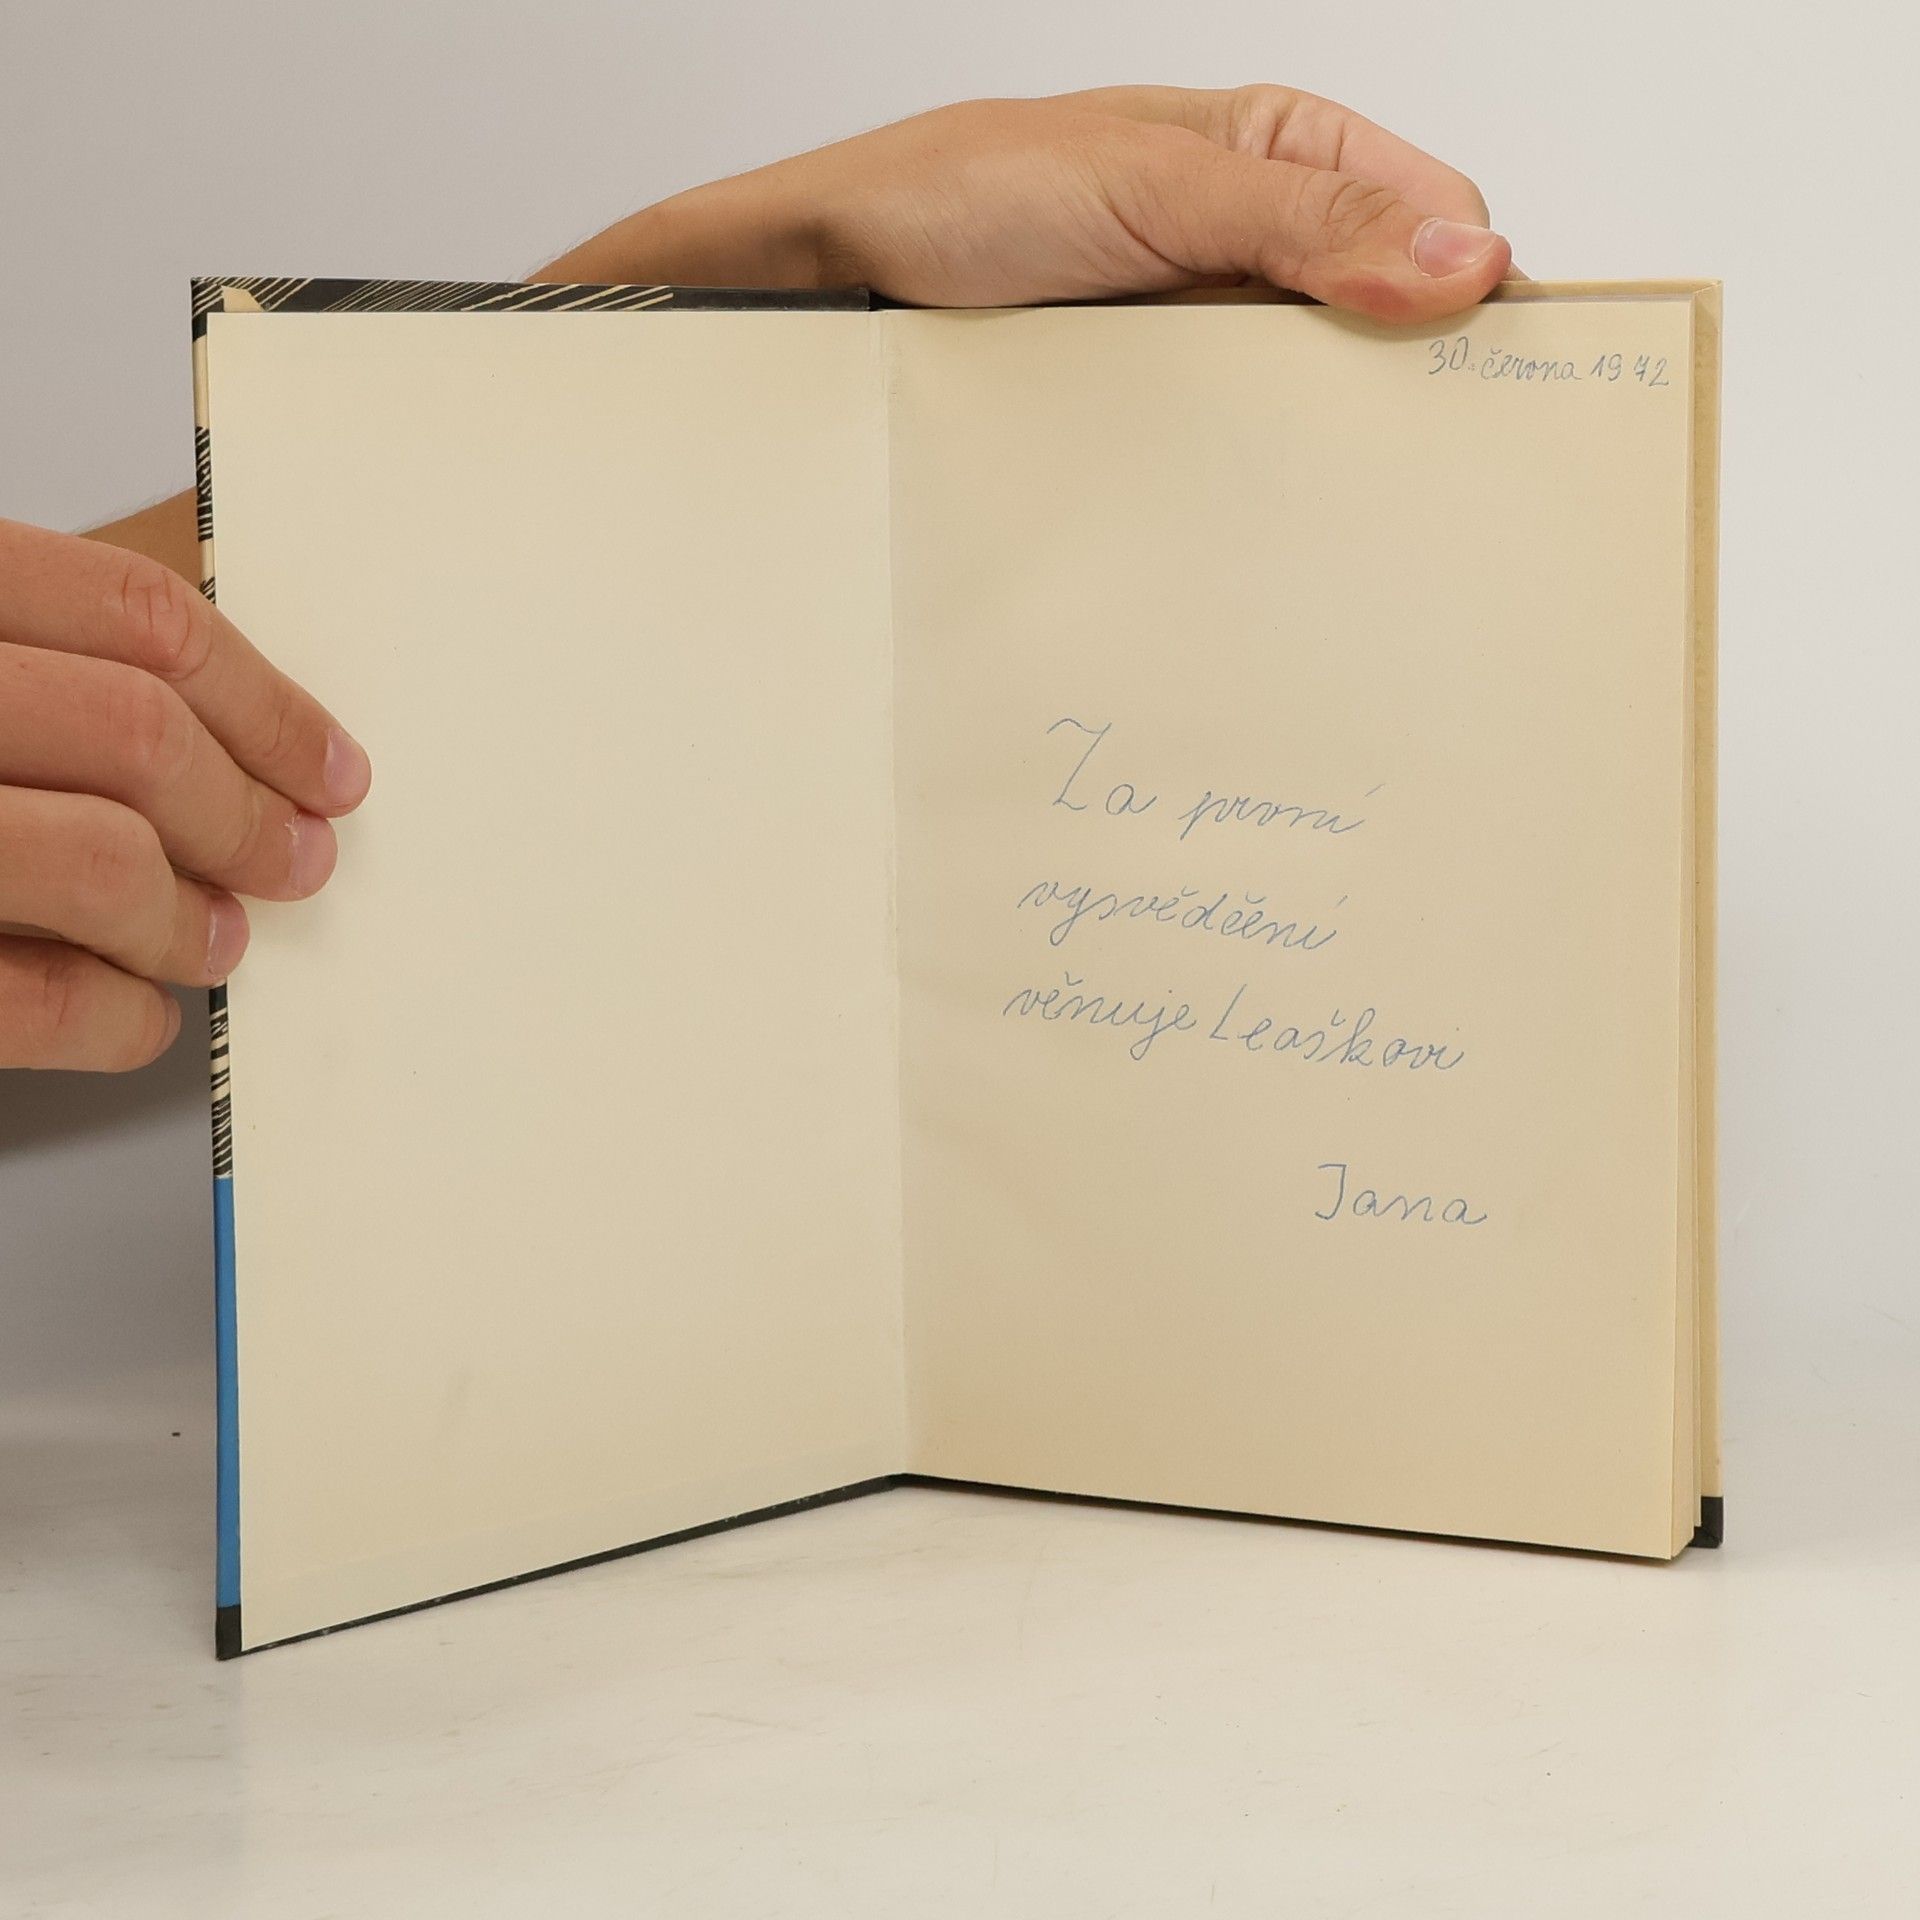 30. června 1972
Za první
vysvědčení
věnuje Leoškovi
Jana